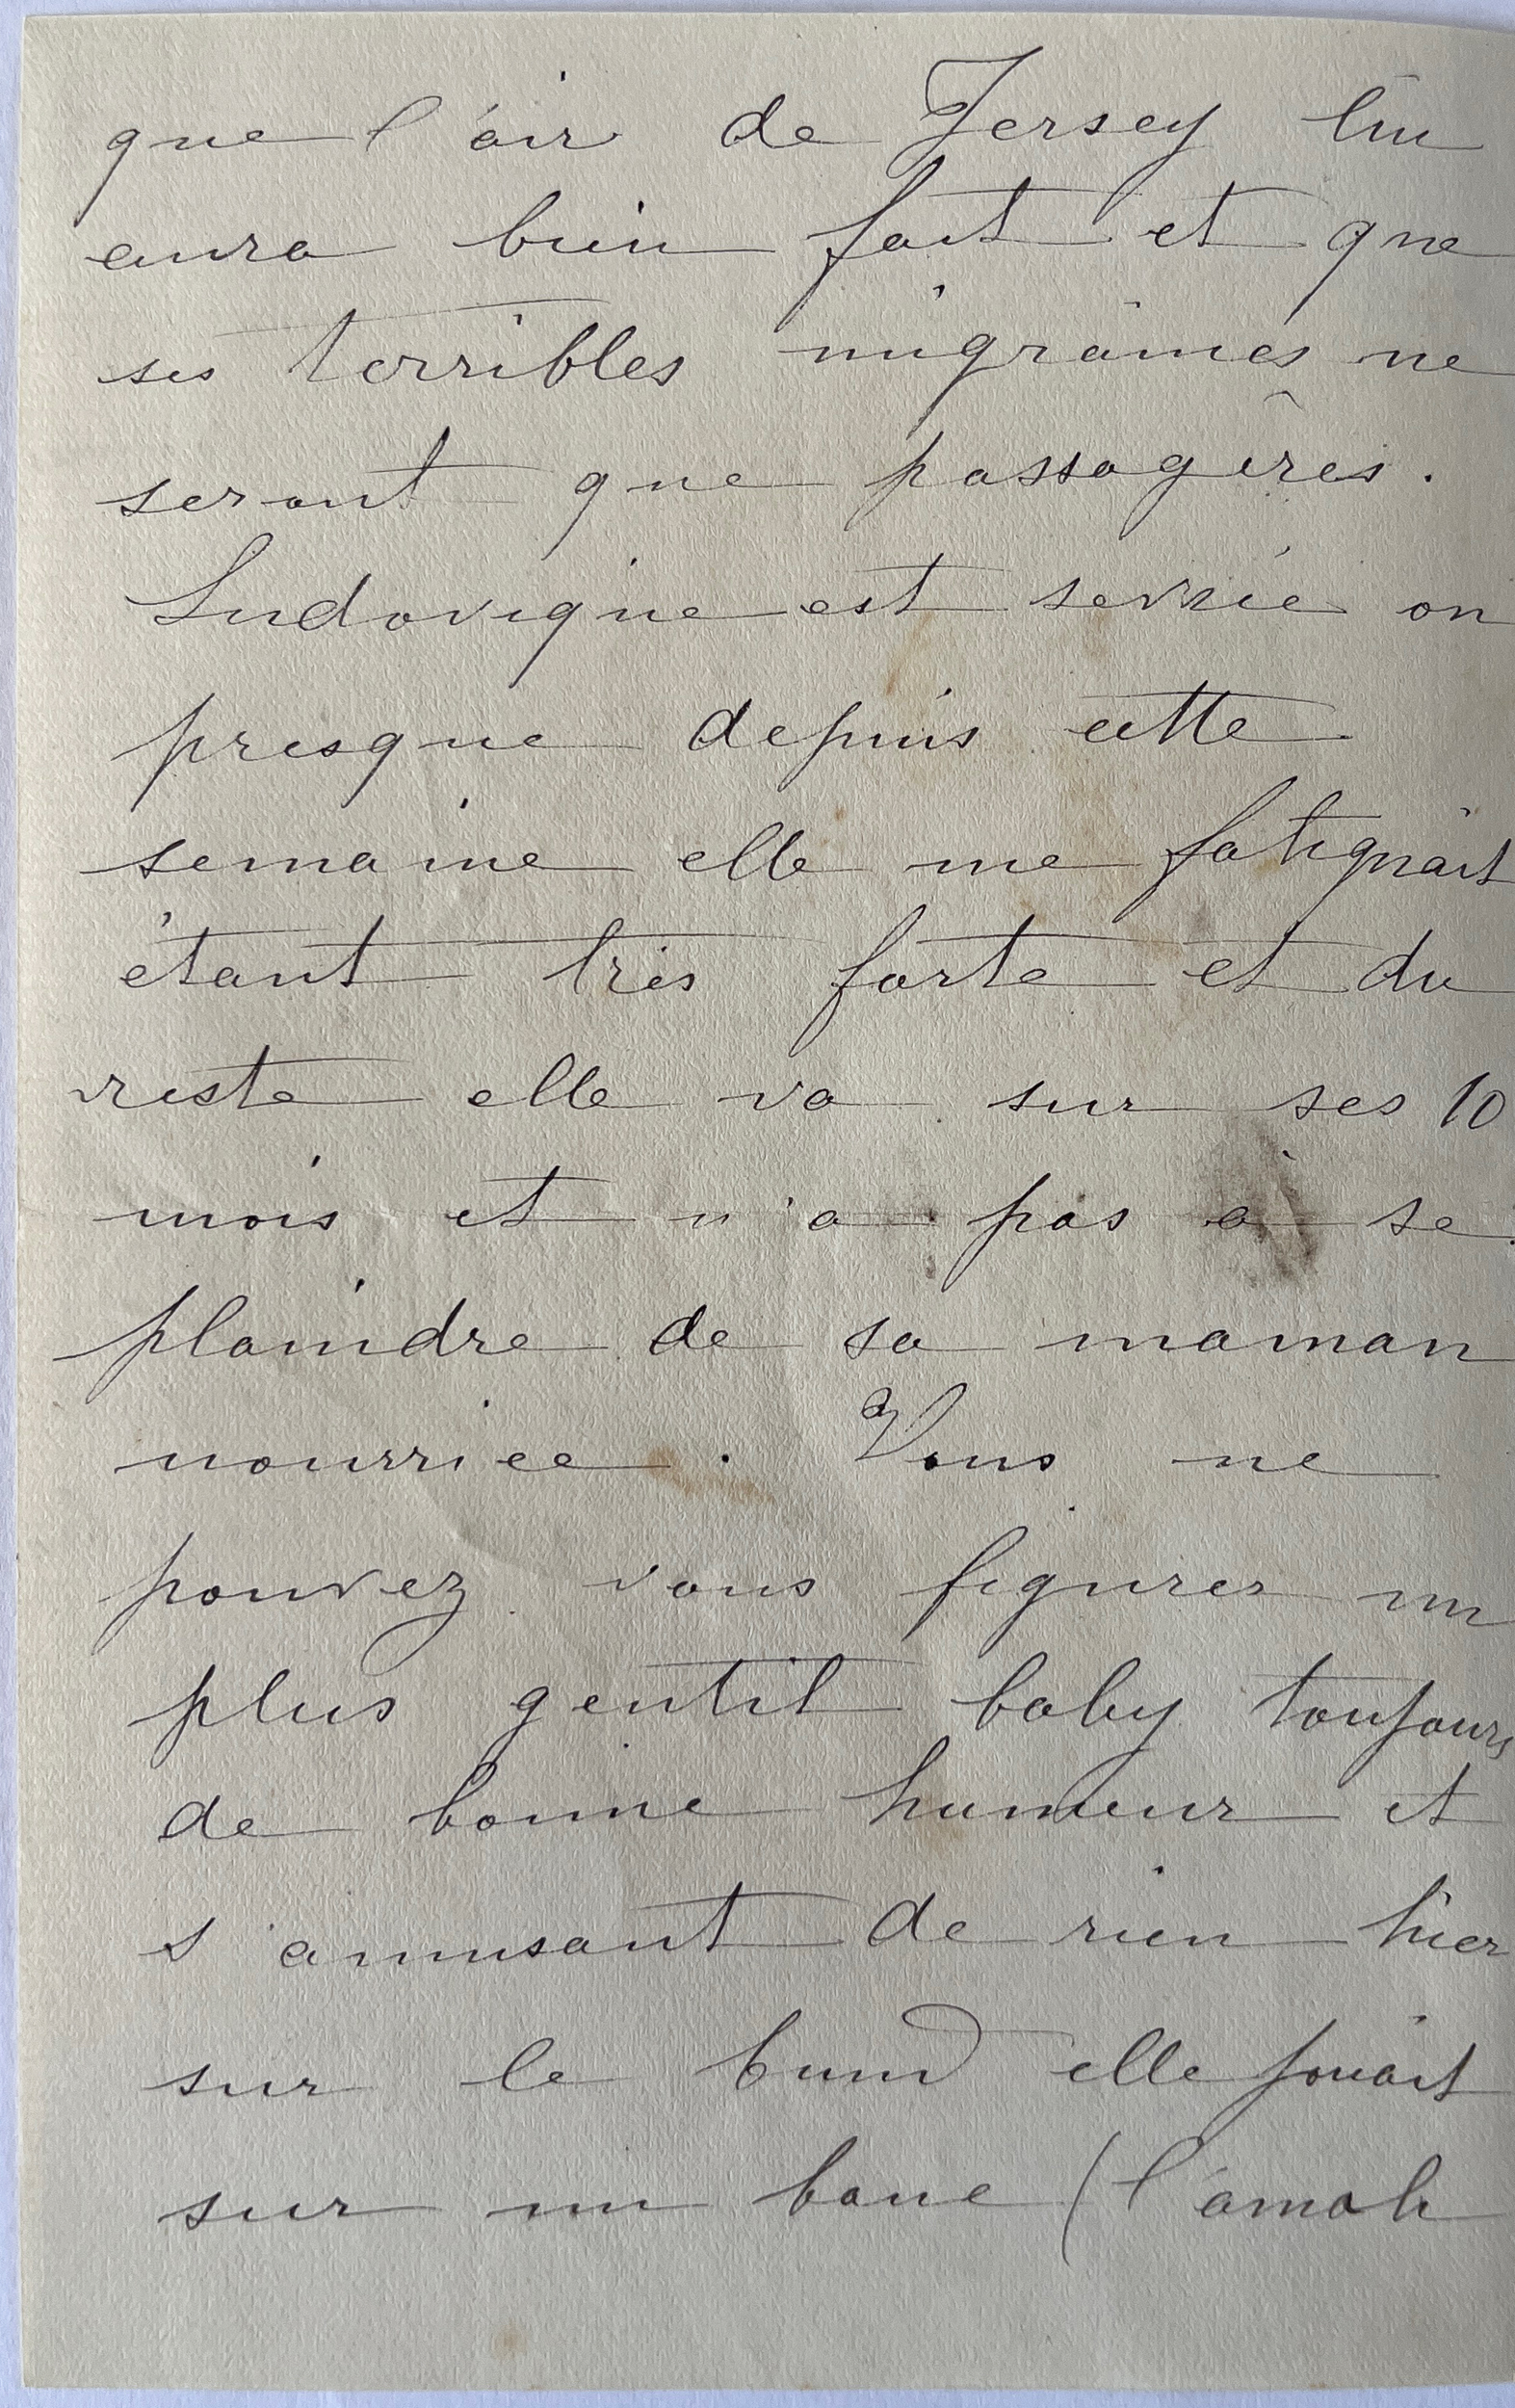 que l'air de Jersey lui
aura bien fait et que
ses terribles migraines ne
seront que passagêres.
Ludovique est sevrée ou
presque depuis cette
semaine elle me fatiguait
étant très forte et du
reste elle va sur ses 10
mois et n'a pas à se
plaindre de sa maman
nourrice. Vous ne
pouvez vous figurer un
plus gentil baby toujours
de bonne humeur et
s'amusant de rien hier
sur le bund elle jouait
sur un banc (l'amah